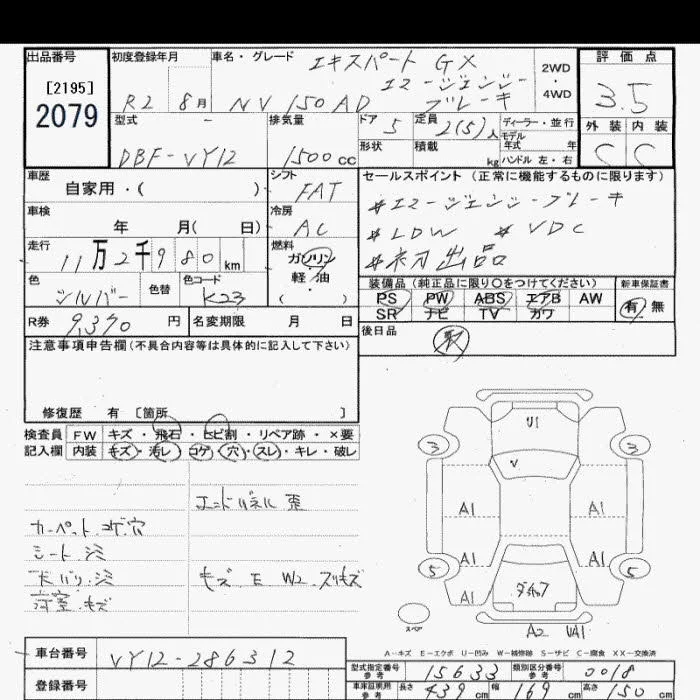 出品番号
[2195]
2079
初度登録年月
R2 8月
車名・グレード
エキスパート GX
エマージェンシー
ブレーキ
NV150AD
2WD
・
4WD
評価点
3.5
外装 内装
C C
型式
DBF-VY12
排気量
1500cc
ドア
5
定員
2(5)人
ディーラー・並行
モデル
年式 年
形状
積載
kg
ハンドル 左・右
車歴
自家用・( )
シフト
FAT
セールスポイント (正常に機能するものに限ります)
#エマージェンシーブレーキ
#LDW #VDC
#初出品
車検
年 月( 日)
冷房
AC
走行
11万2千980km
燃料
ガソリン
軽・油
( )
色
シルバー
色替
色コード
K23
装備品 (純正品に限り○をつけてください)
PS PW ABS エアB AW
SR ナビ TV カワ
新車保証書
有 無
R券
9,370円
名変期限 月 日
後日品
取
注意事項申告欄(不具合内容等は具体的に記入して下さい)
修復歴 有 [箇所 ]
検査員
記入欄
FW キズ・飛石・ヒビ割・リペア跡・×要
内装 キズ・汚レ・コゲ・穴・スレ・キレ・破レ
エンドパネル 歪
カーペット コゲ穴
シート シミ
天バリ シミ
荷室 キズ
キズ E W2 スリキズ
U1
3 3
A1 A1
A1 A1
5 5
A1
スペア
A2 UA1
A-キズ E-エクボ U-凹み W-補修跡 S-サビ C-腐食 XX-交換済
車台番号
VY12-286312
登録番号
型式指定番号
参考
15633
類別区分番号
参考
0018
車庫証明用
参考
長さ 439cm
幅 169cm
高さ 150cm